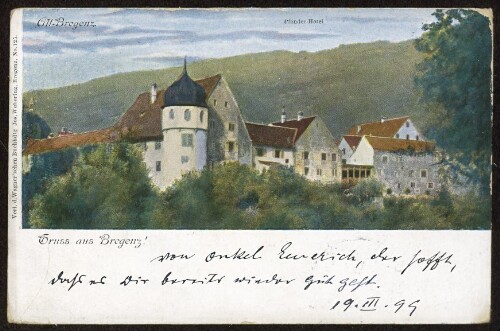 Alt-Bregenz.
Pfänder Hotel
Verl. d. Wagner'schen Buchhdlg. Jos. Wolfrum, Bregenz, No. 121.
Gruss aus Bregenz!
von onkel Emerich, der hofft,
dass es Dir bereits wieder gut geht.
19. III. 99